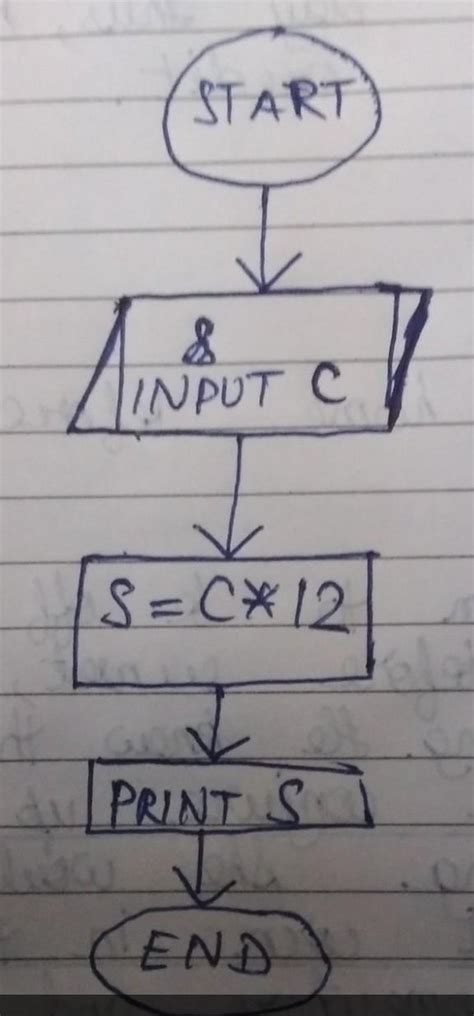 START
INPUT C
S = C * 12
PRINT S
END